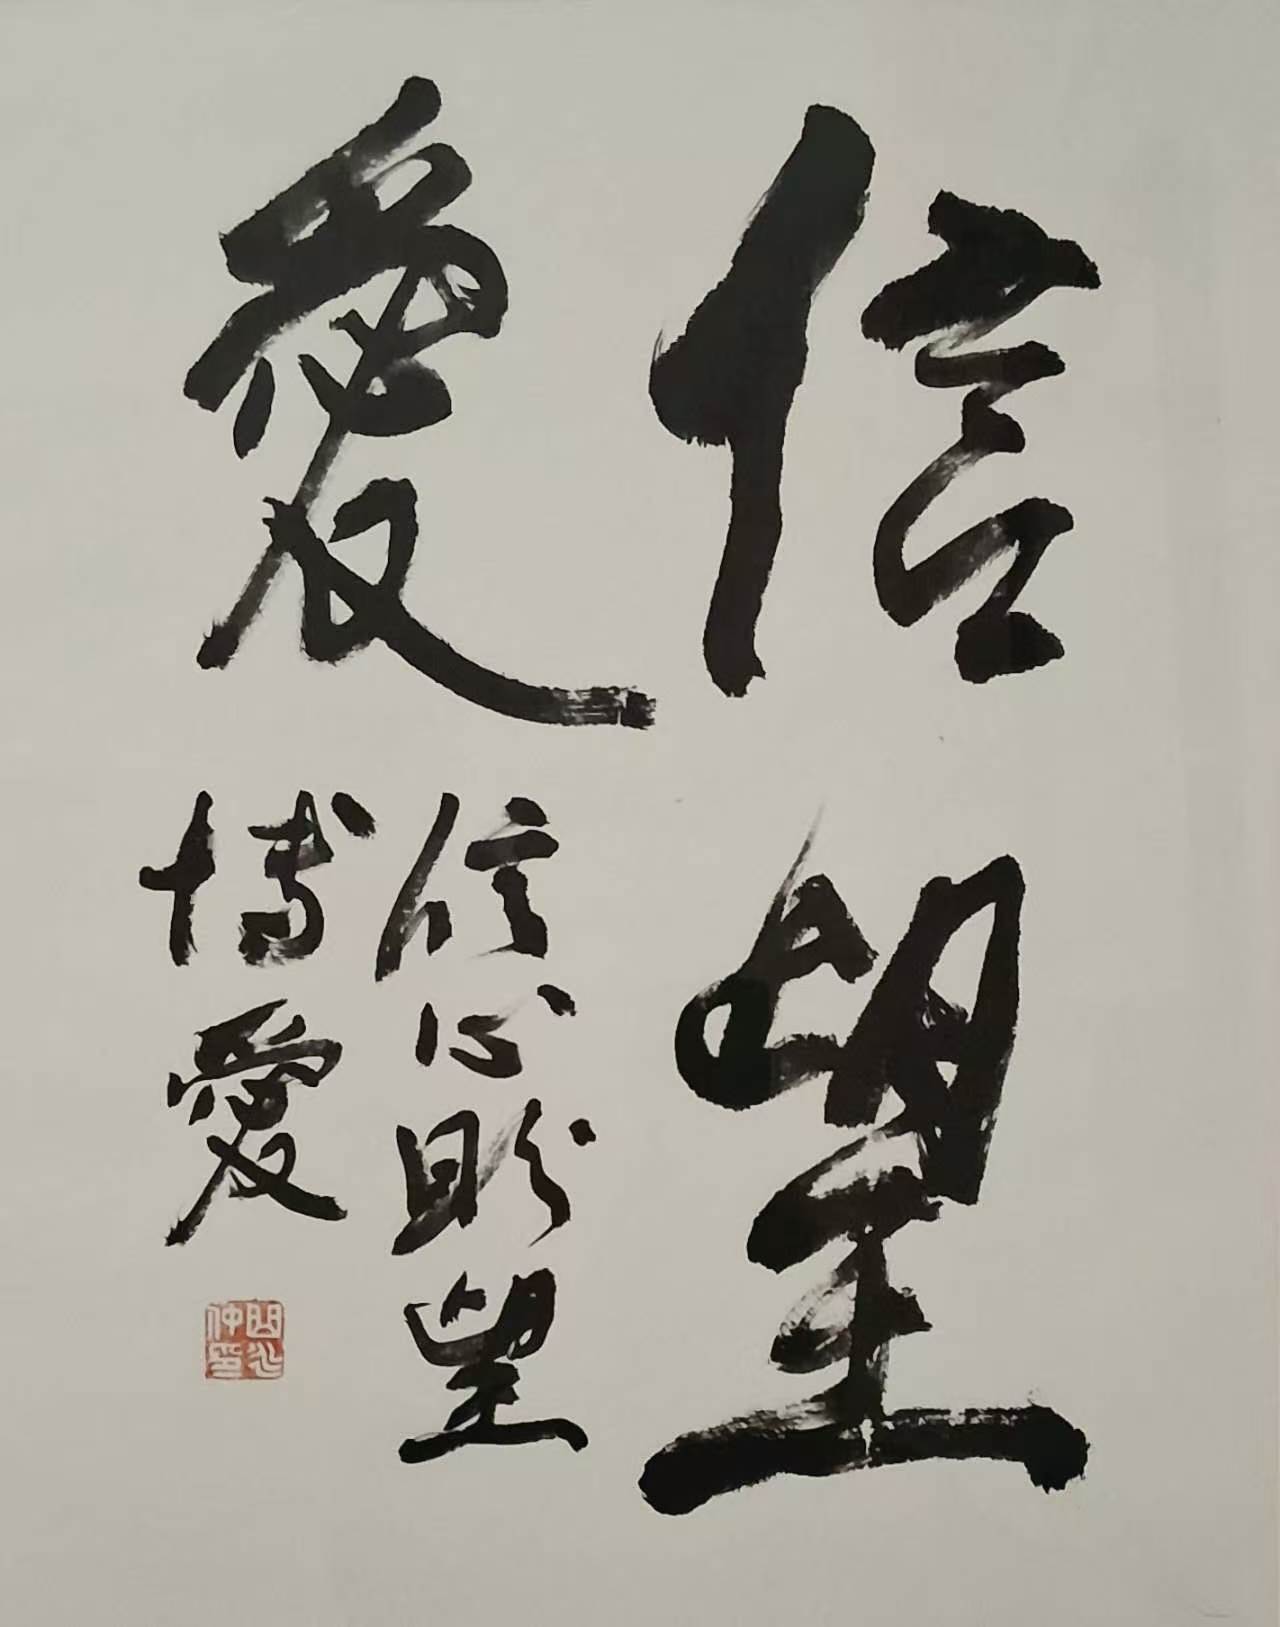 信望
愛
信心盼望
博愛